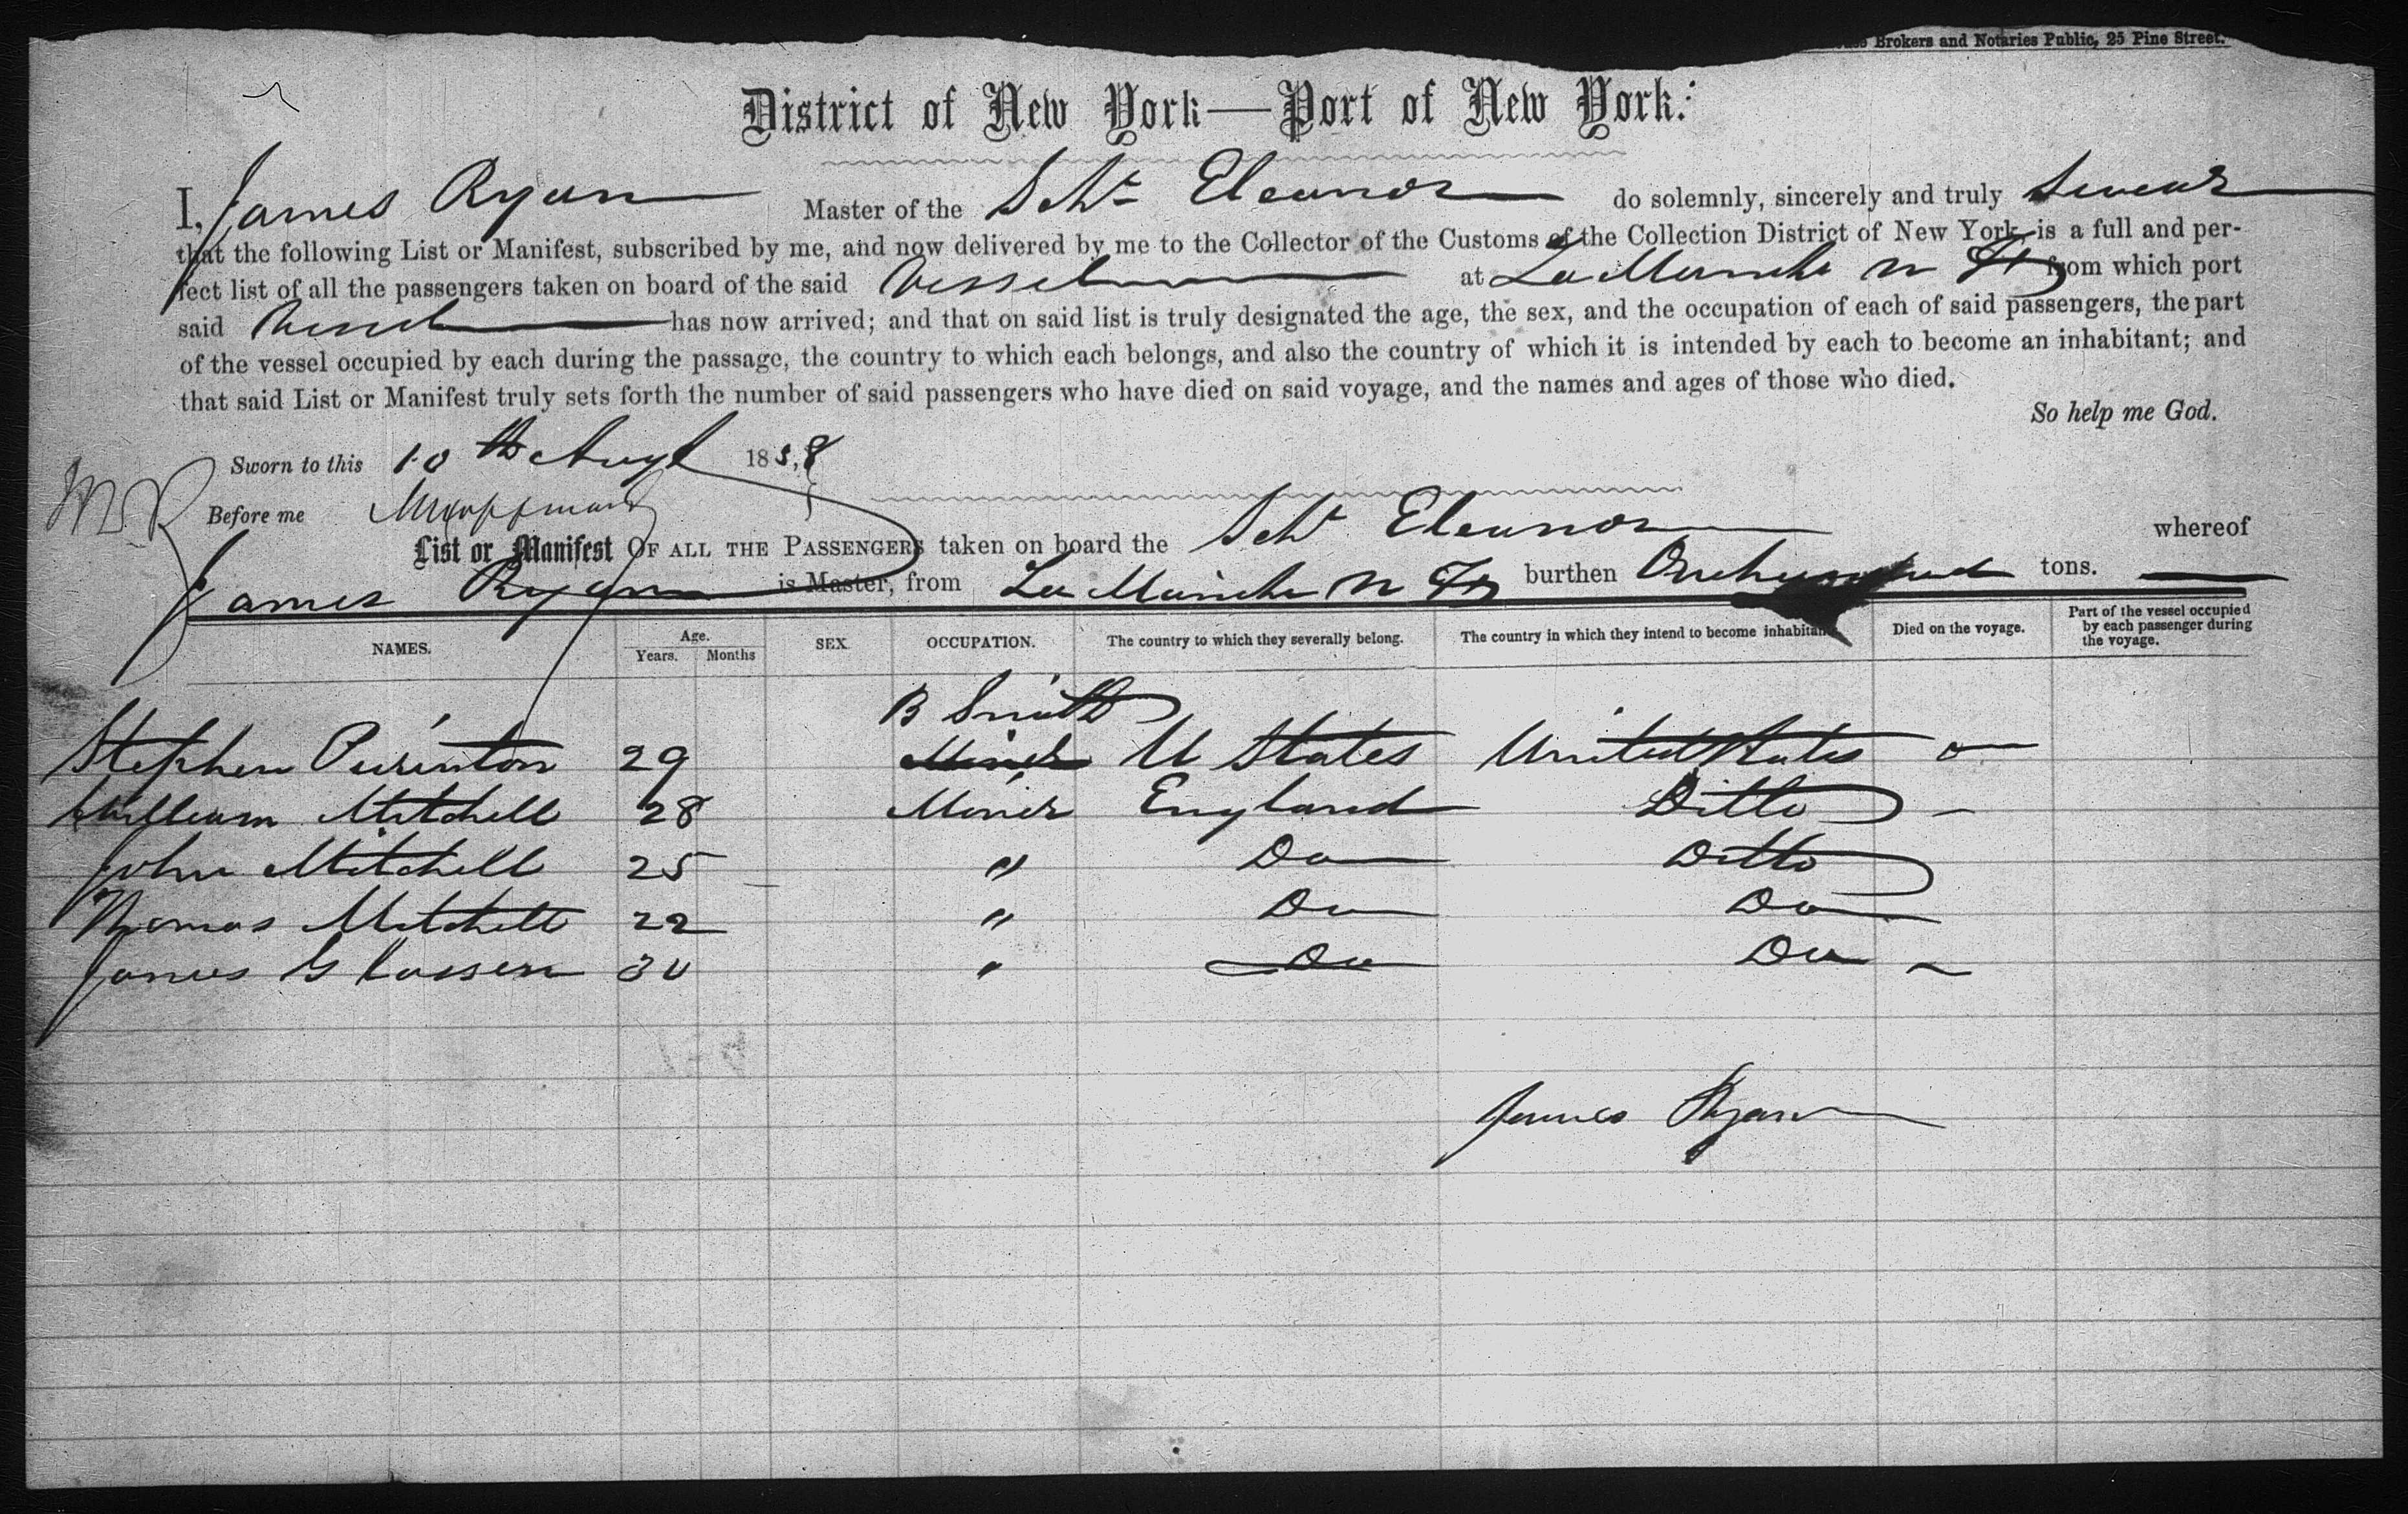 Brokers and Notaries Public, 25 Pine Street.
District of New York—Port of New York:
I, James Ryan Master of the Schr Eleanor do solemnly, sincerely and truly swear
that the following List or Manifest, subscribed by me, and now delivered by me to the Collector of the Customs of the Collection District of New York, is a full and per-
fect list of all the passengers taken on board of the said Vessel at La Manche N F from which port
said Vessel has now arrived; and that on said list is truly designated the age, the sex, and the occupation of each of said passengers, the part
of the vessel occupied by each during the passage, the country to which each belongs, and also the country of which it is intended by each to become an inhabitant; and
that said List or Manifest truly sets forth the number of said passengers who have died on said voyage, and the names and ages of those who died.
So help me God.
Sworn to this 10th Augt 1858
Before me
List or Manifest OF ALL THE PASSENGERS taken on board the Schr Eleanor whereof
James Ryan is Master, from La Manche N F burthen One hundred tons.
NAMES. Age. Years. Months SEX OCCUPATION. The country to which they severally belong. The country in which they intend to become inhabitants. Died on the voyage. Part of the vessel occupied by each passenger during the voyage.
B Smith
Stephen Purinton 29 Miner U States United States
William Mitchell 28 Miner England Ditto
John Mitchell 25 " Do Ditto
Thomas Mitchell 22 " Do Do
James Glassen 30 " Do Do
James Ryan